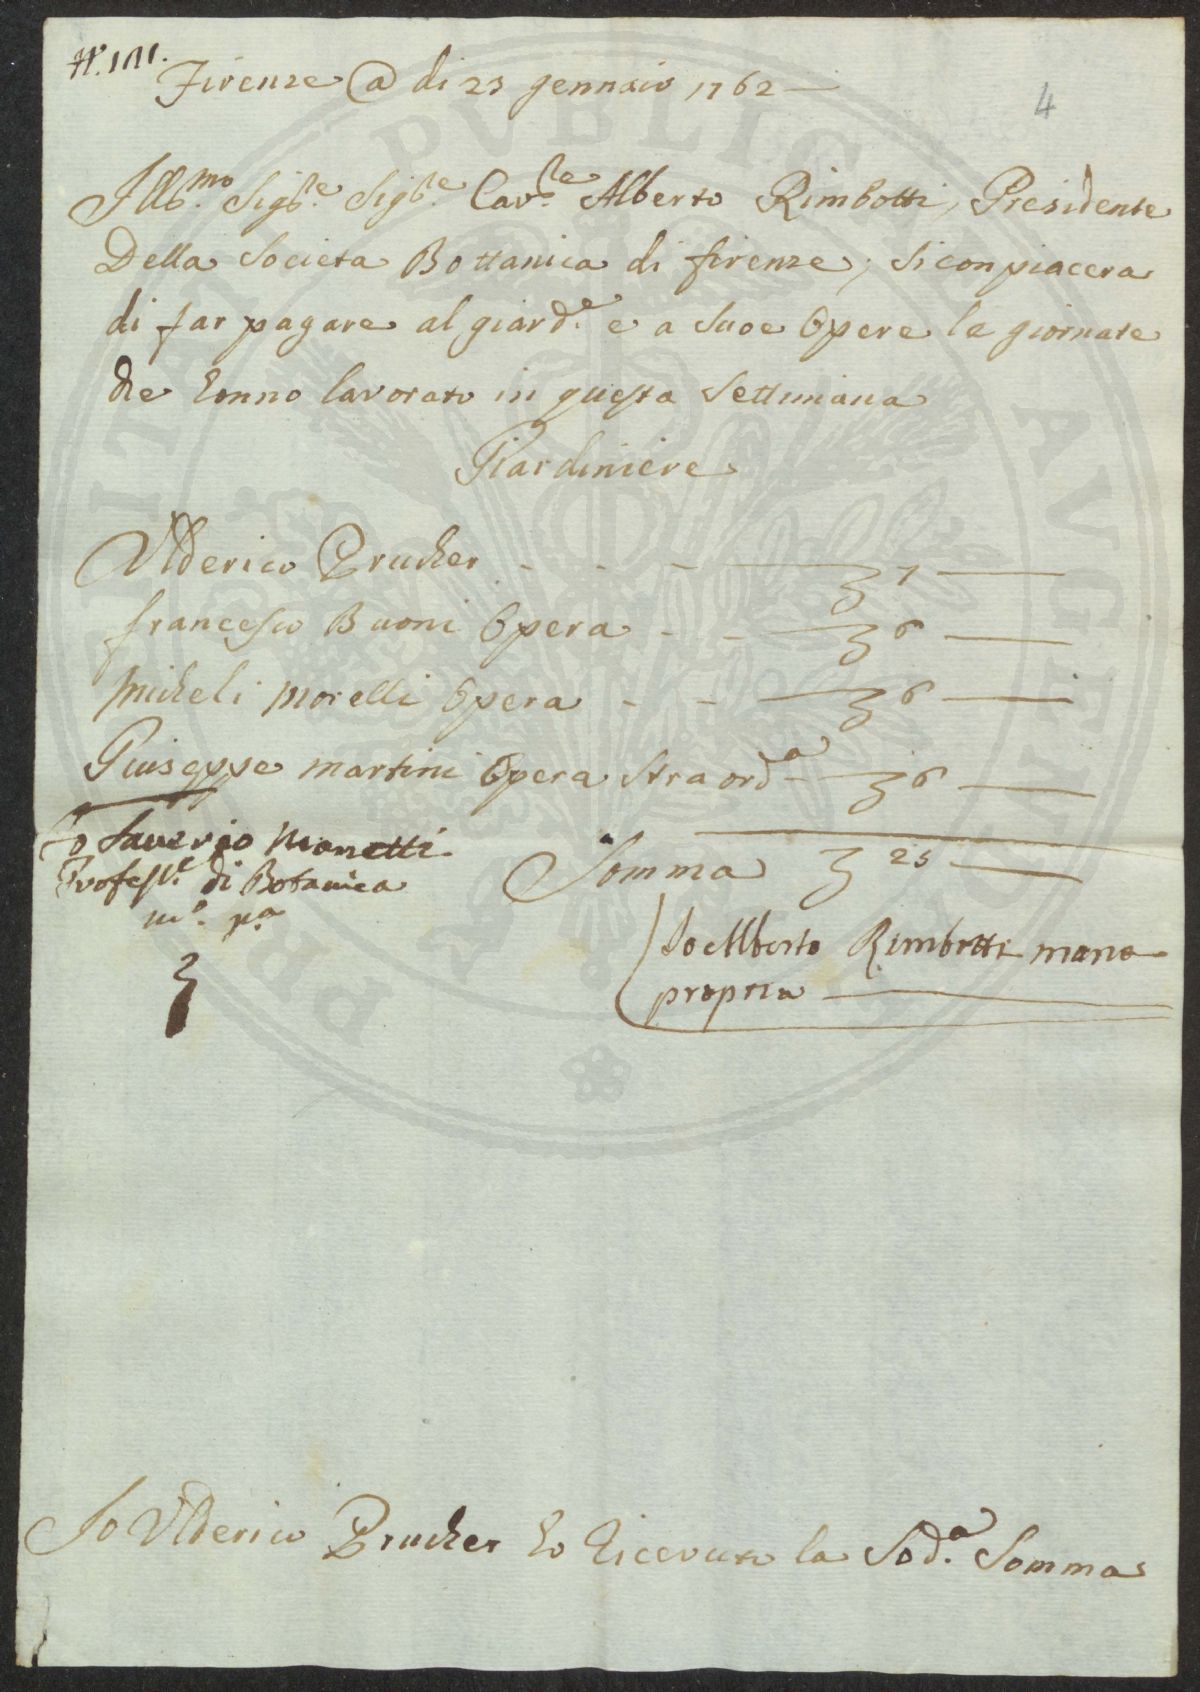 N.° III.
Firenze @ di 23 gennaio 1762
4
Ill.mo Sig.re Sig.re Cav.re Alberto Rimbotti, Presidente
Della Societa Bottanica di firenze; si conpiacera
di far pagare al giard.e e a Suoe Opere le giornate
che hanno lavorato in questa Settimana
Giardiniere
Ulderico Prucker - - - 7
francesco Buoni Opera - - 6
Micheli Morelli Opera - - 6
Giuseppe Martini Opera Straord.a 6
Somma 25
Io Saverio Manetti
Profess.e di Botanica
m.o p.a
Io Alberto Rimbotti mano
propria
Io Ulderico Prucker ho Riceuuto la Sod.a Somma
PVBLICAE
VTILITATI
AVGENDAE